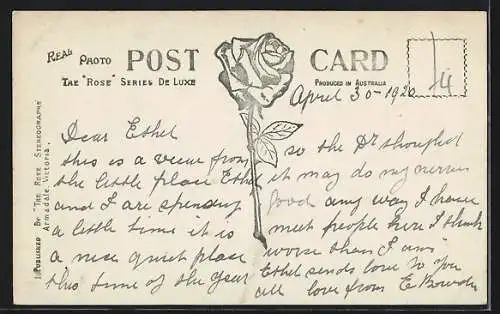 REAL PHOTO POST CARD
THE "ROSE" SERIES DE LUXE
PRODUCED IN AUSTRALIA
PUBLISHED BY "THE ROSE STEREOGRAPHS"
ARMADALE, VICTORIA.
April 30 - 1920
Dear Ethel
this is a view from
the little place Ethel
and I are spending
a little time it is
a nice quiet place
this time of the year
so the Dr thought
it may do my nerves
good any way I have
meet people here I think
worse than I am
Ethel sends love to you
all love from E